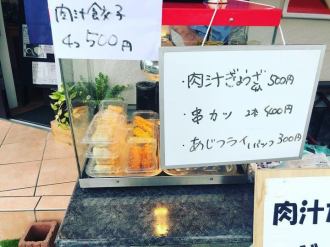 肉汁餃子
4コ500円
・肉汁ぎょうざ 500円
・串カツ 2本400円
・あじフライ1パック300円
肉汁